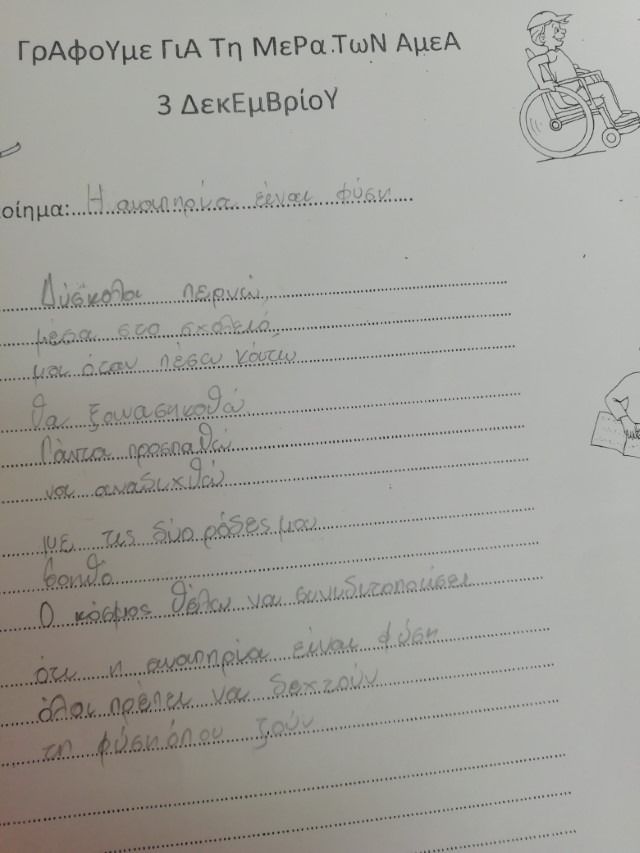 ΓρΑφοΥμε ΓιΑ Τη ΜεΡα ΤωΝ ΑμεΑ
3 ΔεκΕμΒρίοΥ
οίημα: Η αναπηρία είναι φύση
Δύσκολα περνώ,
μέσα στο σχολειό,
μα όταν πέσω κάτω
θα ξανασηκοθώ
Πάντα προσπαθώ
να αναδιχθώ
με τις δύο ρόδες μου
βοηθό
Ο κόσμος θέλω να συνιδιτοποιείσει
ότι η αναπηρία είναι φύση
όλοι πρέπει να δεχτούν
τη φύση όπου ζούν